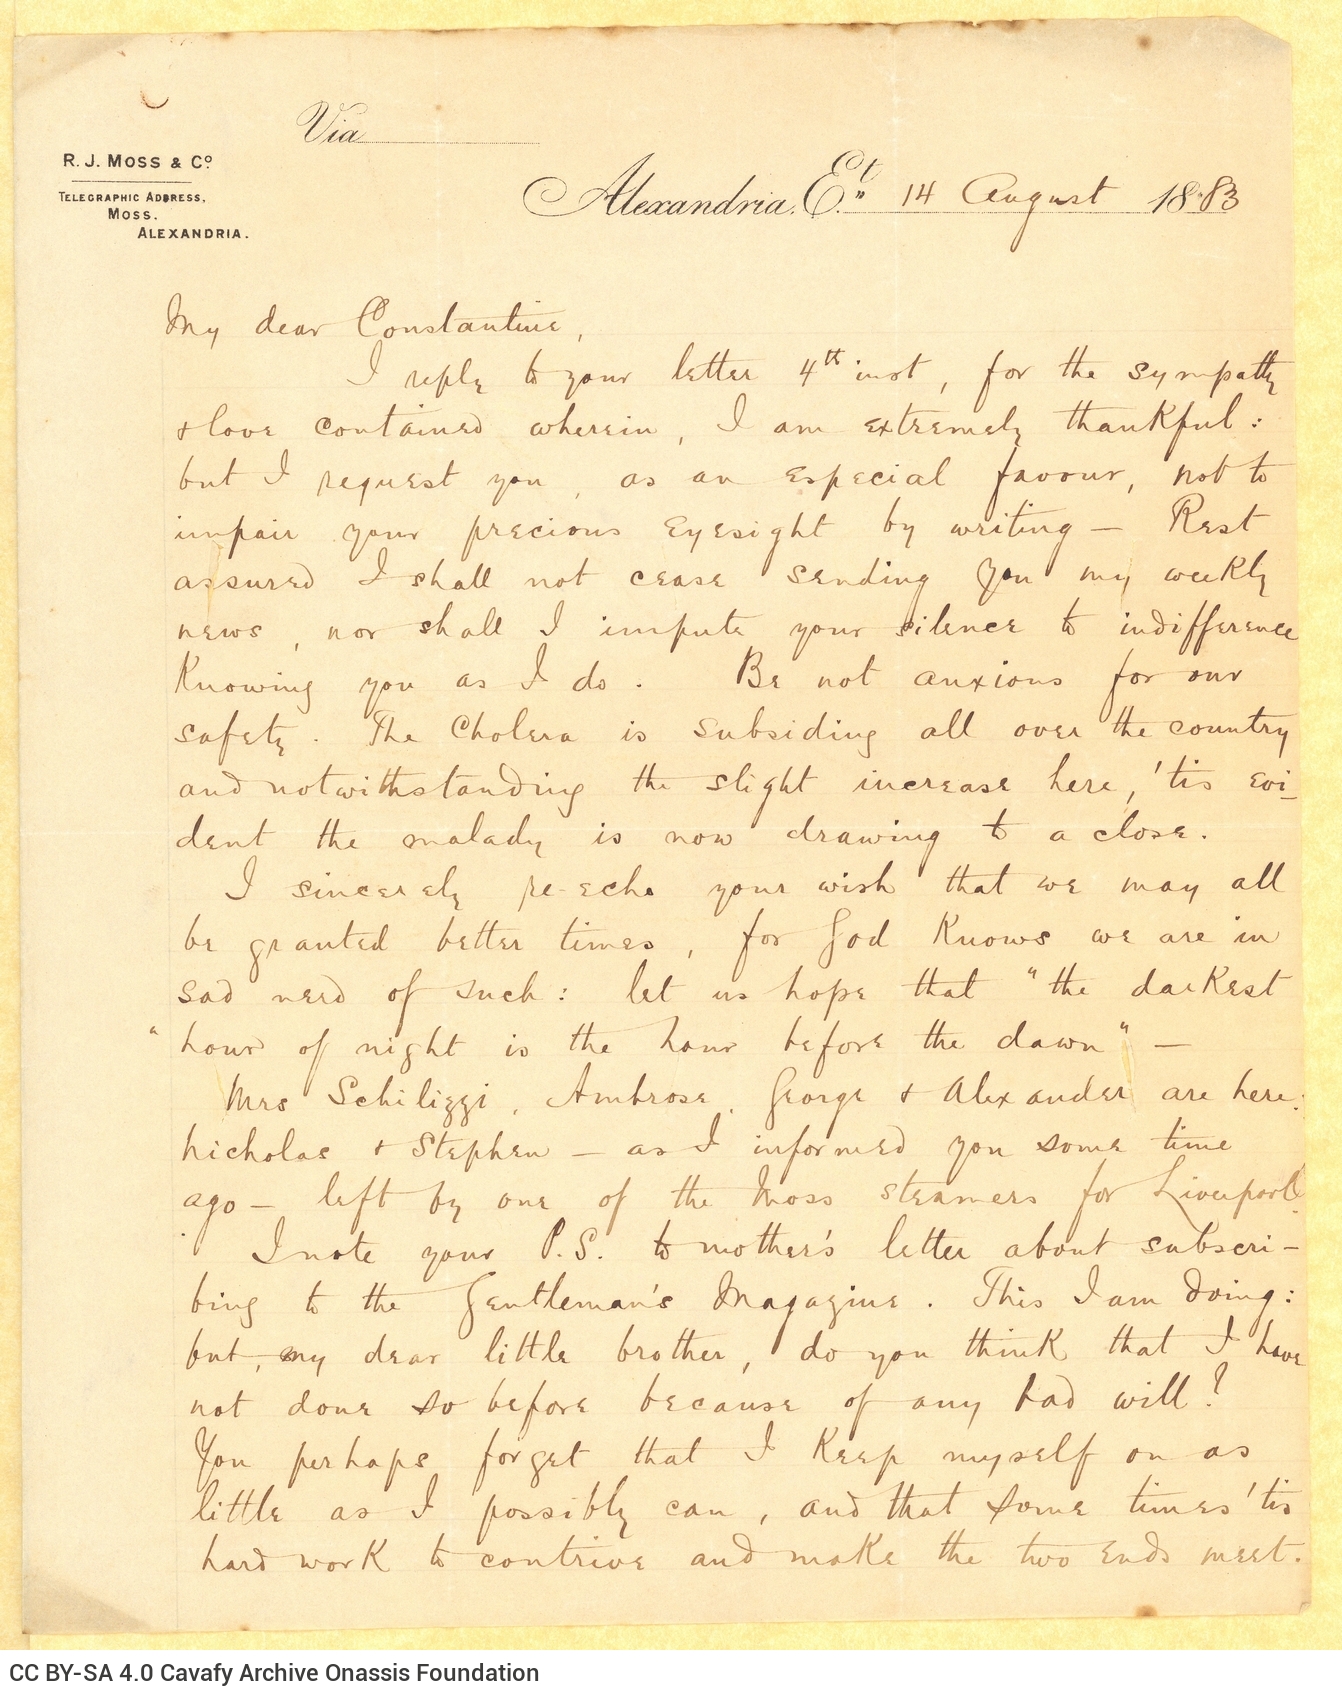 Via
R. J. Moss & Co.
Telegraphic Address,
Moss.
Alexandria.
Alexandria, Et. 14 August 1883
My dear Constantine,
I reply to your letter 4th inst, for the sympathy
& love contained wherein, I am extremely thankful:
but I request you, as an especial favour, not to
impair your precious eyesight by writing — Rest
assured I shall not cease sending you my weekly
news, nor shall I impute your silence to indifference
knowing you as I do. Be not anxious for our
safety. The Cholera is subsiding all over the country
and notwithstanding the slight increase here, 'tis evi-
dent the malady is now drawing to a close.
I sincerely re-echo your wish that we may all
be granted better times, for God knows we are in
sad need of such: let us hope that "the darkest
"hour of night is the hour before the dawn" —
Mrs Schilizzi, Ambrose, George & Alexander are here:
Nicholas & Stephen — as I informed you some time
ago — left by one of the Moss steamers for Liverpool.
I note your P.S. to mother's letter about subscri-
bing to the Gentleman's Magazine. This I am doing:
but, my dear little brother, do you think that I have
not done so before because of any bad will?
You perhaps forget that I keep myself on as
little as I possibly can, and that some times 'tis
hard work to contrive and make the two ends meet.
CC BY-SA 4.0 Cavafy Archive Onassis Foundation